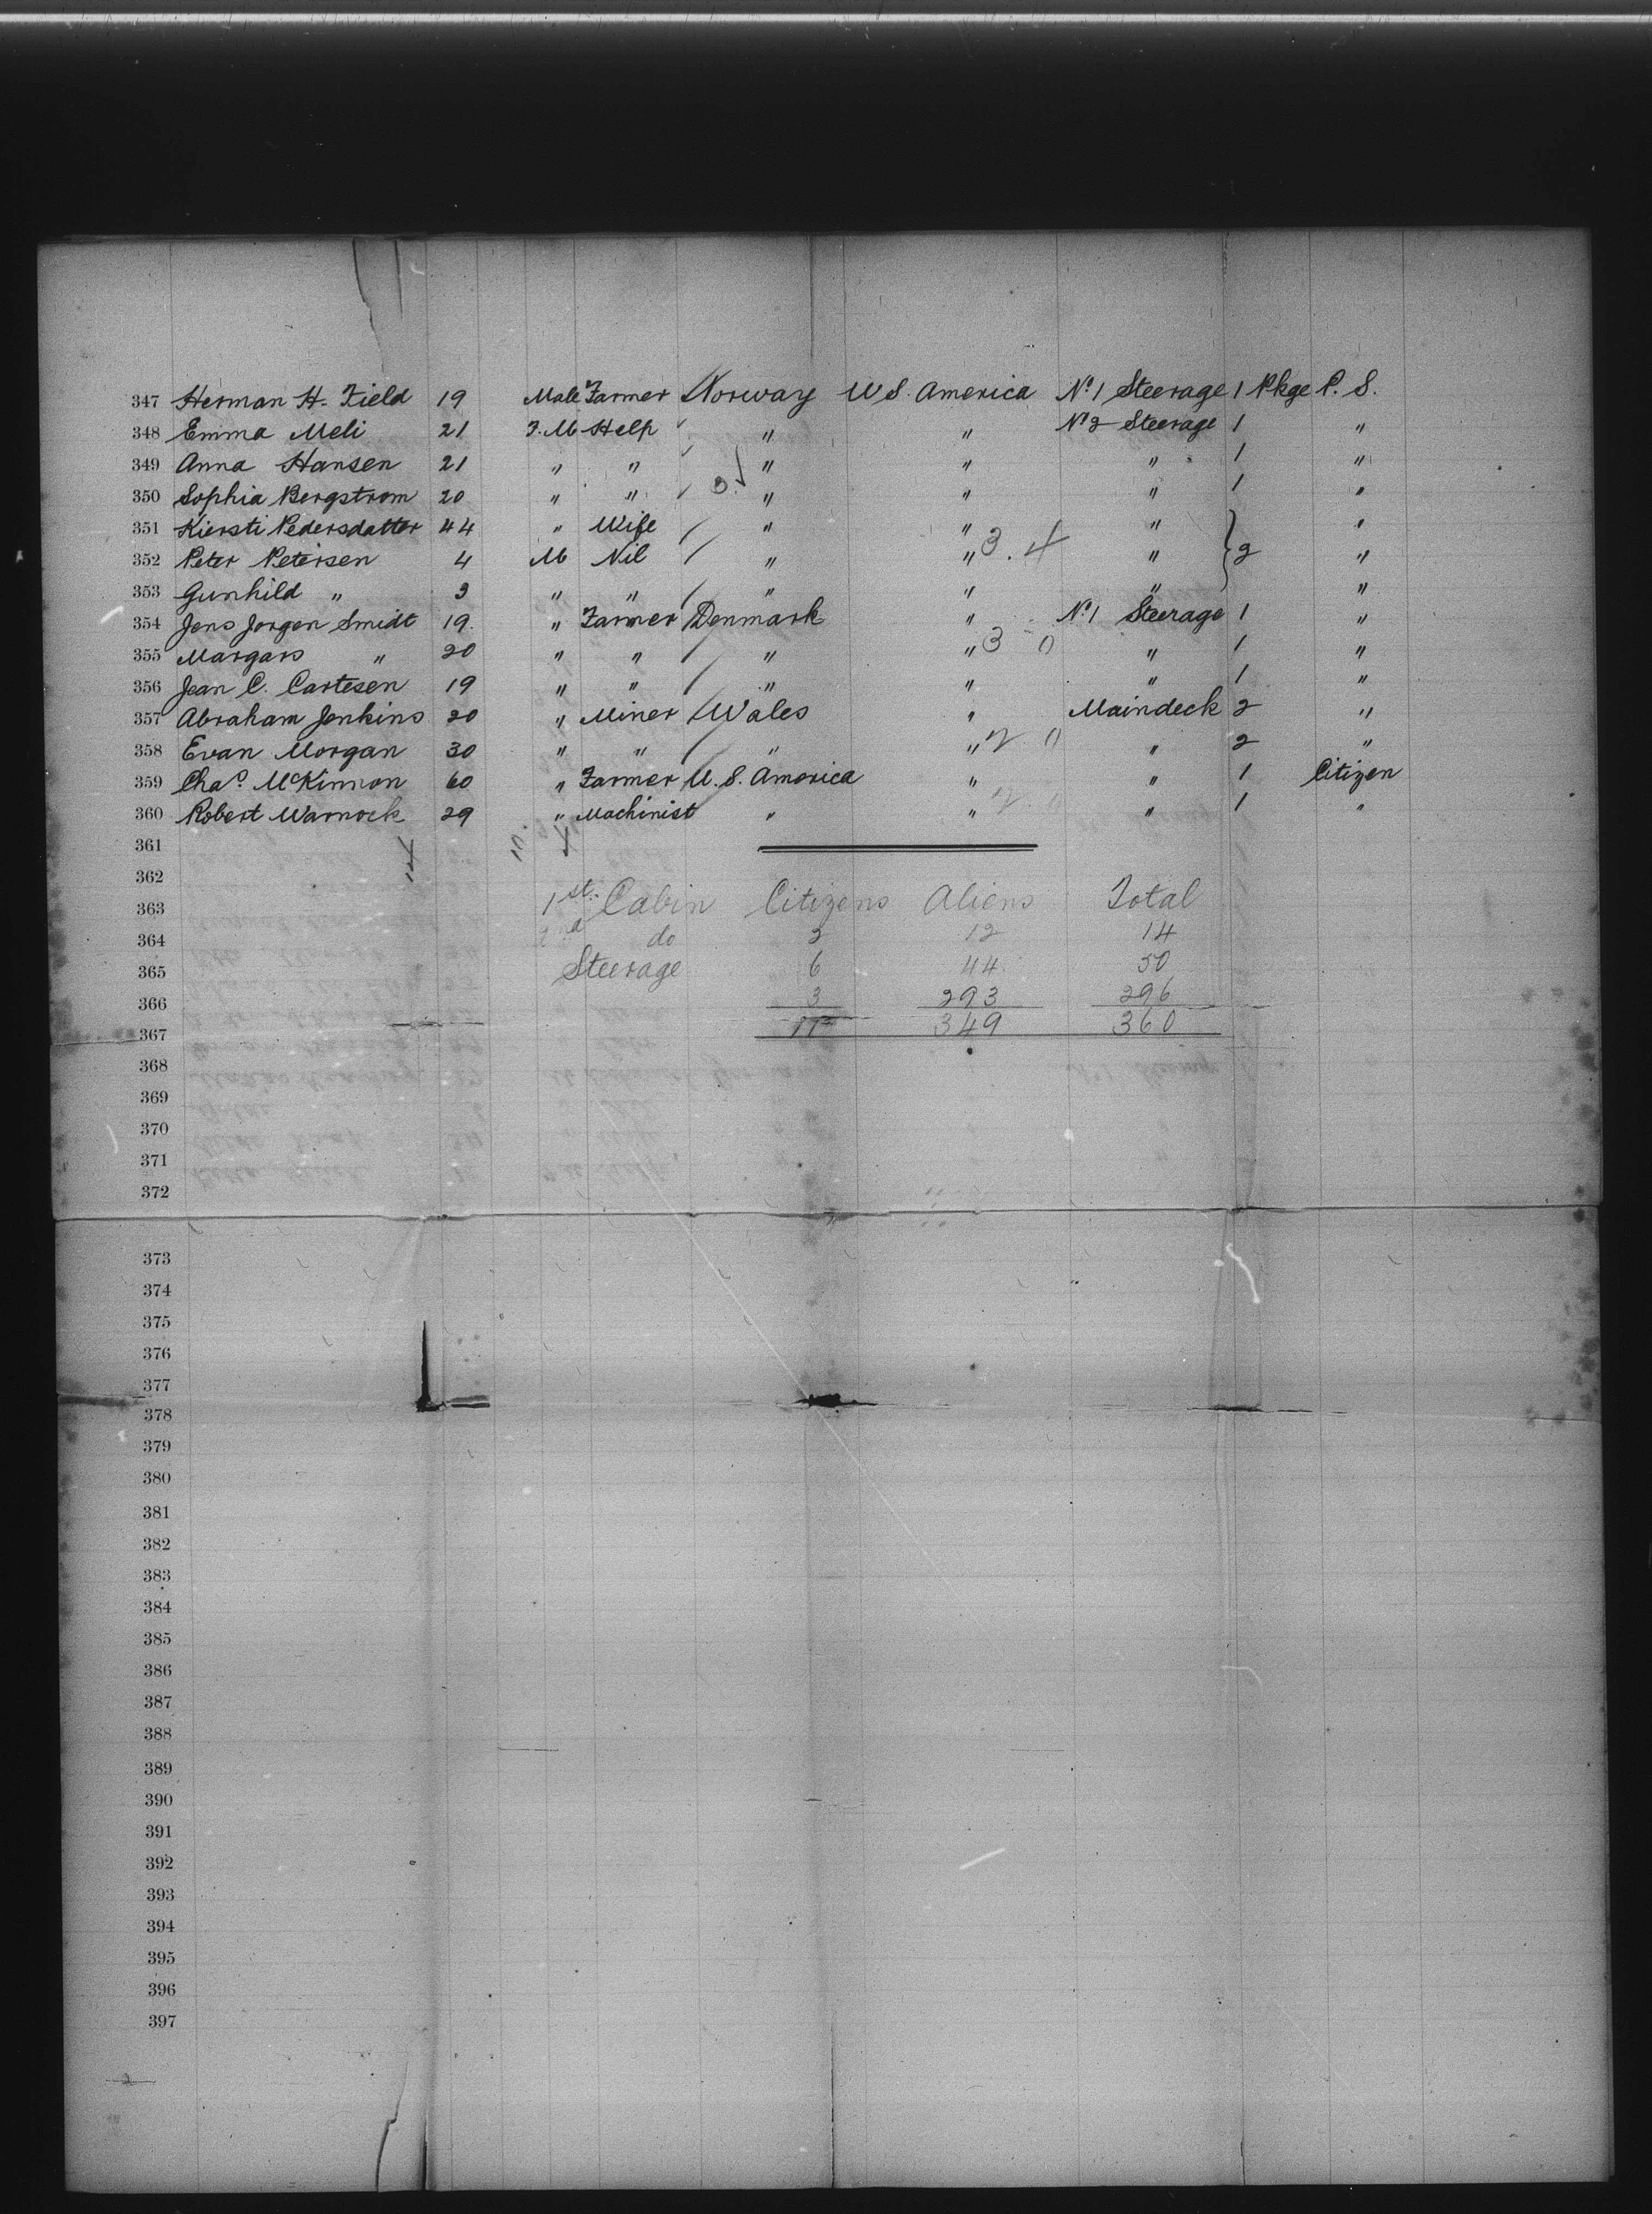 347 Herman H. Field 19 Male Farmer Norway U S. America No 1 Steerage 1 Pkge P. S.
348 Emma Meli 21 F. M Help " " No 2 Steerage 1 "
349 Anna Hansen 21 " " " " " 1 "
350 Sophia Bergstrom 20 " " " " " 1 "
351 Kiersti Pedersdatter 44 " Wife " " " "
352 Peter Petersen 4 M Nil " " 3. 4 " } 2 "
353 Gunhild " 3 " " " " " "
354 Jens Jorgen Smidt 19. " Farmer Denmark " No 1 Steerage 1 "
355 Margars " 20 " " " " 3 0 " 1 "
356 Jean C. Cartesen 19 " " " " " 1 "
357 Abraham Jenkins 20 " Miner Wales " Maindeck 2 "
358 Evan Morgan 30 " " " " 2 0 " 2 "
359 Chas. McKinnon 60 " Farmer U. S. America " " 1 Citizen
360 Robert Warnock 29 " Machinist " " " 1 "
361
362
363 1st. Cabin Citizens Aliens Total
364 2nd do 2 12 14
365 Steerage 6 44 50
366 3 293 296
367 11 349 360
368
369
370
371
372
373
374
375
376
377
378
379
380
381
382
383
384
385
386
387
388
389
390
391
392
393
394
395
396
397